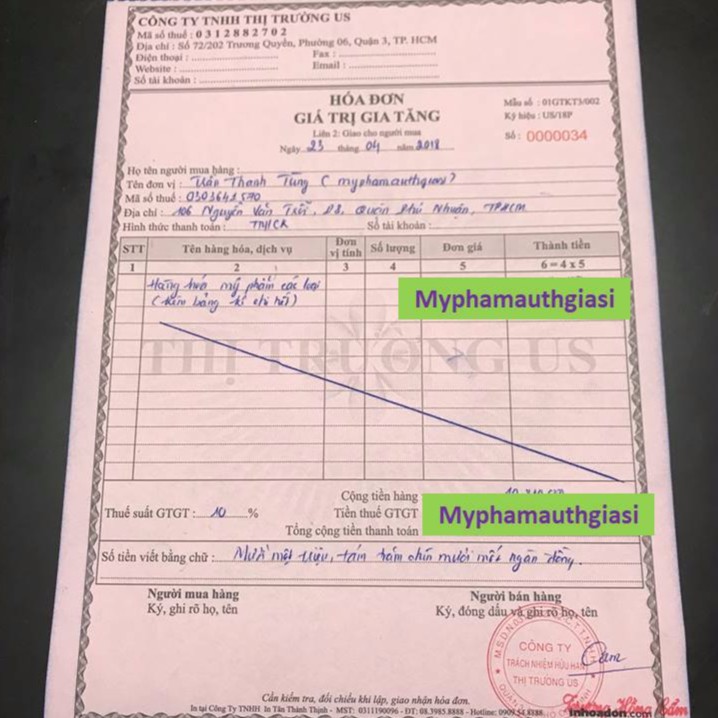 CÔNG TY TNHH THỊ TRƯỜNG US
Mã số thuế : 0312882702
Địa chỉ : Số 72/202 Trương Quyền, Phường 06, Quận 3, TP. HCM
Điện thoại : Fax :
Website : Email :
Số tài khoản :
HÓA ĐƠN
GIÁ TRỊ GIA TĂNG
Liên 2: Giao cho người mua
Ngày 23 tháng 04 năm 2018
Mẫu số : 01GTKT3/002
Ký hiệu : US/18P
Số : 0000034
Họ tên người mua hàng :
Tên đơn vị : Trần Thanh Tùng ( myphamauthgiasi)
Mã số thuế : 0303641570
Địa chỉ : 106 Nguyễn Văn Trỗi, P8, Quận Phú Nhuận, TPHCM
Hình thức thanh toán : TM/CK Số tài khoản :
STT Tên hàng hóa, dịch vụ Đơn vị tính Số lượng Đơn giá Thành tiền
1 2 3 4 5 6 = 4 x 5
Hàng hóa mỹ phẩm các loại
Myphamauthgiasi
(kèm bảng kê chi tiết)
THỊ TRƯỜNG US
Cộng tiền hàng
Thuế suất GTGT : 10 % Tiền thuế GTGT
Myphamauthgiasi
Tổng cộng tiền thanh toán
Số tiền viết bằng chữ : Mười một triệu, tám trăm chín mươi một ngàn đồng.
Người mua hàng Người bán hàng
Ký, ghi rõ họ, tên Ký, đóng dấu và ghi rõ họ, tên
CÔNG TY
TRÁCH NHIỆM HỮU HẠN
THỊ TRƯỜNG US
Cần kiểm tra, đối chiếu khi lập, giao nhận hóa đơn.
In tại Công Ty TNHH In Tân Thành Thịnh - MST: 0311190096 - ĐT: 08.3985.8888 - Hotline: 0909.54.8188
Inhoadon.com